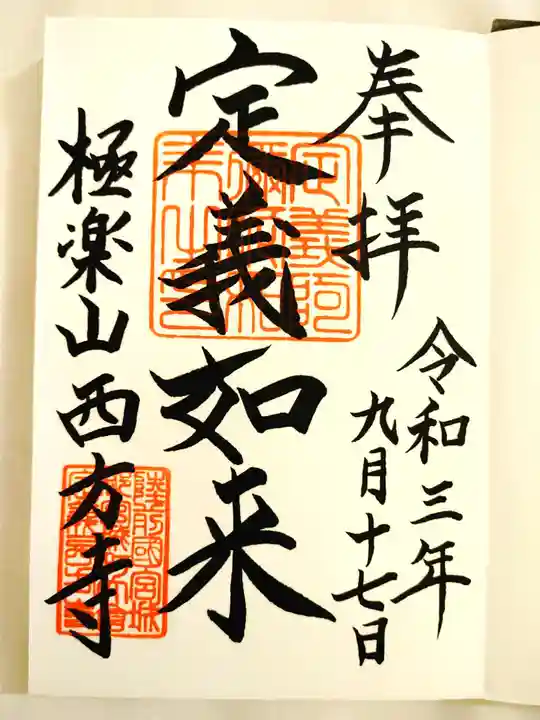 奉拝
令和三年
九月十七日
定義如来
極楽山西方寺